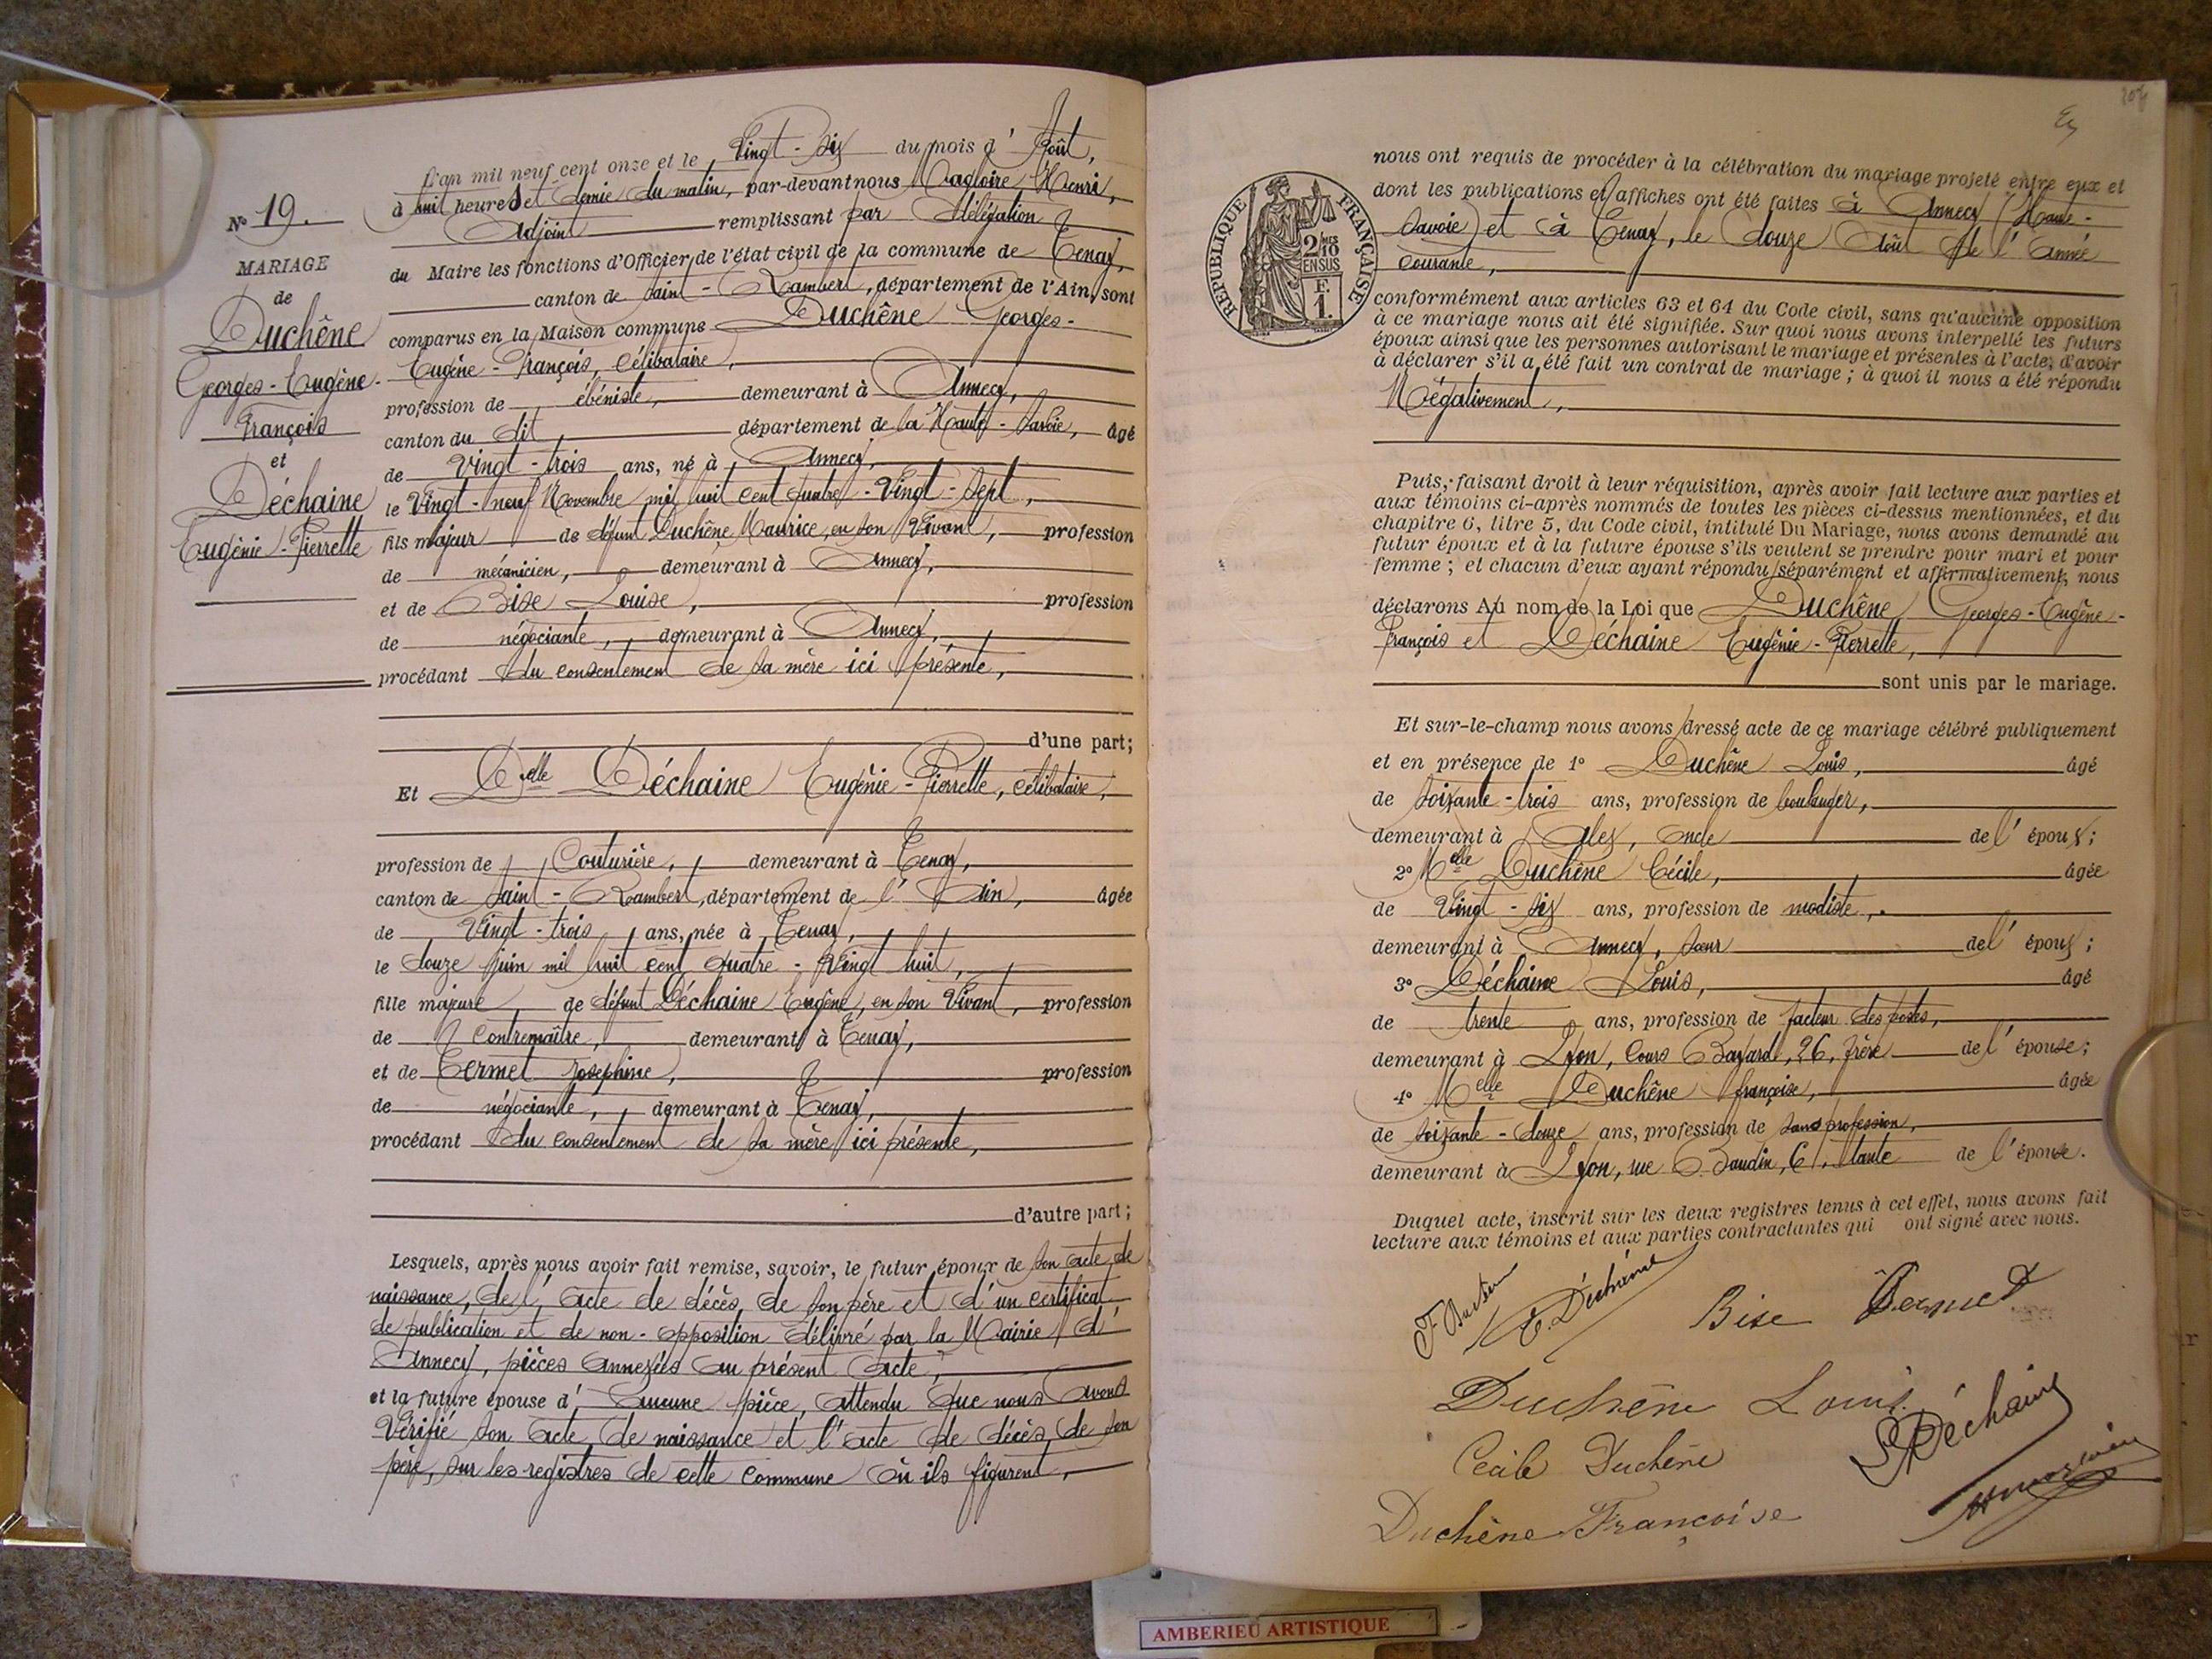 L'an mil neuf cent onze et le Vingt-six du mois d'Août,
à huit heures et demie du matin, par-devant nous Magloire Henri,
Adjoint remplissant par délégation
du Maire les fonctions d'Officier de l'état civil de la commune de Tenay,
canton de Saint-Rambert, département de l'Ain, sont
comparus en la Maison commune Duchêne Georges-
Eugène-François, célibataire,
profession de ébéniste, demeurant à Annecy,
canton du dit, département de la Haute-Savoie, âgé
de Vingt-trois ans, né à Annecy,
le Vingt-neuf Novembre mil huit cent quatre-Vingt-Sept,
fils majeur de défunt Duchêne Maurice, en son Vivant, profession
de mécanicien, demeurant à Annecy,
et de Bise Louise, profession
de négociante, demeurant à Annecy,
procédant du consentement de sa mère ici présente,
d'une part;
Et Delle Déchaine Eugénie-Pierrette, célibataire,
profession de Couturière, demeurant à Tenay,
canton de Saint-Rambert, département de l'Ain, âgée
de Vingt-trois ans, née à Tenay,
le douze juin mil huit cent quatre-Vingt huit,
fille majeure de défunt Déchaine Eugène, en son Vivant, profession
de Contremaître, demeurant à Tenay,
et de Termet Joséphine, profession
de négociante, demeurant à Tenay,
procédant du consentement de sa mère ici présente,
d'autre part;
Lesquels, après nous avoir fait remise, savoir, le futur époux de son acte de
naissance, de l'acte de décès de son père et d'un certificat
de publication et de non-opposition délivré par la Mairie d'
Annecy, pièces annexées au présent acte,
et la future épouse d'aucune pièce, attendu que nous avons
Vérifié son acte de naissance et l'acte de décès de son
père, sur les registres de cette commune où ils figurent,
N° 19.
MARIAGE
de
Duchêne
Georges-Eugène-
François
et
Déchaine
Eugénie-Pierrette
nous ont requis de procéder à la célébration du mariage projeté entre eux et
dont les publications et affiches ont été faites à Annecy (Haute-
Savoie) et à Tenay, le douze Août de l'année
courante,
conformément aux articles 63 et 64 du Code civil, sans qu'aucune opposition
à ce mariage nous ait été signifiée. Sur quoi nous avons interpellé les futurs
époux ainsi que les personnes autorisant le mariage et présentes à l'acte, d'avoir
à déclarer s'il a été fait un contrat de mariage; à quoi il nous a été répondu
Négativement,
Puis, faisant droit à leur réquisition, après avoir fait lecture aux parties et
aux témoins ci-après nommés de toutes les pièces ci-dessus mentionnées, et du
chapitre 6, titre 5, du Code civil, intitulé Du Mariage, nous avons demandé au
futur époux et à la future épouse s'ils veulent se prendre pour mari et pour
femme; et chacun d'eux ayant répondu séparément et affirmativement, nous
déclarons Au nom de la Loi que Duchêne Georges-Eugène-
François et Déchaine Eugénie-Pierrette,
sont unis par le mariage.
Et sur-le-champ nous avons dressé acte de ce mariage célébré publiquement
et en présence de 1° Duchêne Louis, âgé
de Soixante-trois ans, profession de boulanger,
demeurant à Alex, oncle de l'époux;
2° Melle Duchêne Cécile, âgée
de Vingt-six ans, profession de modiste,
demeurant à Annecy, sœur de l'époux;
3° Déchaine Louis, âgé
de trente ans, profession de facteur des postes,
demeurant à Lyon, Cours Bayard, 26, frère de l'épouse;
4° Melle Duchêne françoise, âgée
de Soixante-douze ans, profession de sans profession,
demeurant à Lyon, rue Baudin, 6, tante de l'épouse.
Duquel acte, inscrit sur les deux registres tenus à cet effet, nous avons fait
lecture aux témoins et aux parties contractantes qui ont signé avec nous.
E. Déchaine
Bise
Termet
Duchêne Louis
L Déchaine
Cécile Duchêne
Duchêne Françoise
RÉPUBLIQUE FRANÇAISE
2/10 MES
EN SUS
F.
1.
AMBERIEU ARTISTIQUE